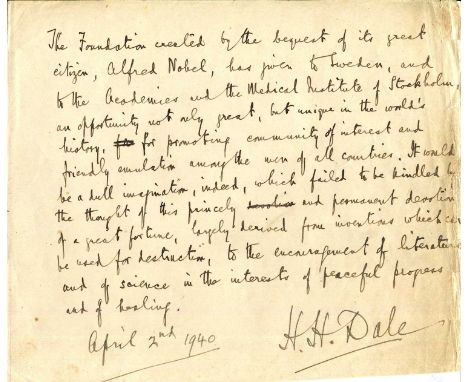 The Foundation created by the bequest of its great
citizen, Alfred Nobel, has given to Sweden, and
to the Academies and the Medical Institute of Stockholm,
an opportunity not only great, but unique in the world's
history, for for promoting community of interest and
friendly emulation among the men of all countries. It would
be a dull imagination, indeed, which failed to be kindled by
the thought of this princely devotion and permanent devotion
of a great fortune, largely derived from inventions which can
be used for destruction, to the encouragement of literature
and of science in the interests of peaceful progress
and of healing.
April 2nd 1940 H. H. Dale